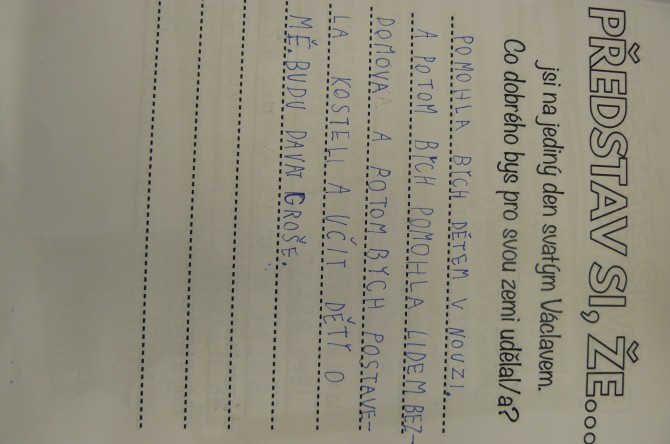 PŘEDSTAV SI, ŽE...
jsi na jediný den svatým Václavem.
Co dobrého bys pro svou zemi udělal/a?
POMOHLA BYCH DĚTEM V NOUZI.
A POTOM BYCH POMOHLA LIDEM BEZ-
DOMOVA A POTOM BYCH POSTAVE-
LA KOSTELI A UČÍT DĚTY O
MĚ. BUDU DAVAT GROŠE.